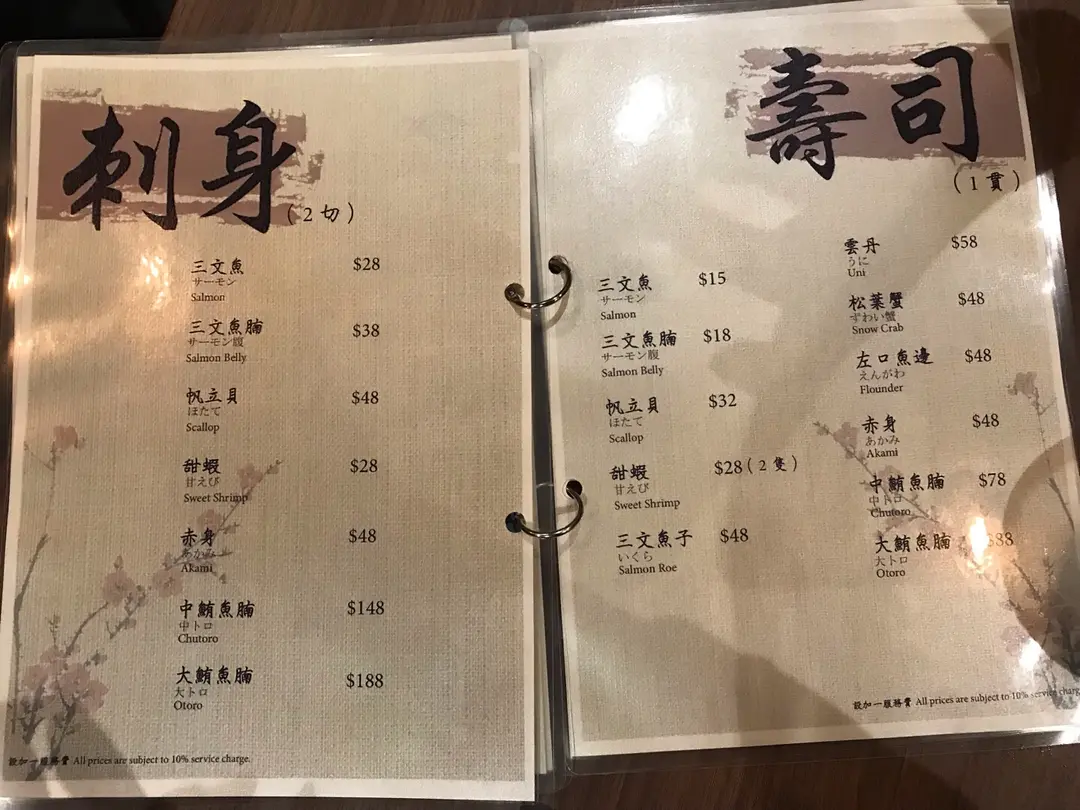 刺身
(2切)
三文魚 $28
サーモン
Salmon
三文魚腩 $38
サーモン腹
Salmon Belly
帆立貝 $48
ほたて
Scallop
甜蝦 $28
甘えび
Sweet Shrimp
赤身 $48
あかみ
Akami
中鮪魚腩 $148
中トロ
Chutoro
大鮪魚腩 $188
大トロ
Otoro
設加一服務費 All prices are subject to 10% service charge.
壽司
(1貫)
三文魚 $15
サーモン
Salmon
三文魚腩 $18
サーモン腹
Salmon Belly
帆立貝 $32
ほたて
Scallop
甜蝦 $28(2隻)
甘えび
Sweet Shrimp
三文魚子 $48
いくら
Salmon Roe
雲丹 $58
うに
Uni
松葉蟹 $48
ずわい蟹
Snow Crab
左口魚邊 $48
えんがわ
Flounder
赤身 $48
あかみ
Akami
中鮪魚腩 $78
中トロ
Chutoro
大鮪魚腩
大トロ
Otoro
設加一服務費 All prices are subject to 10% service